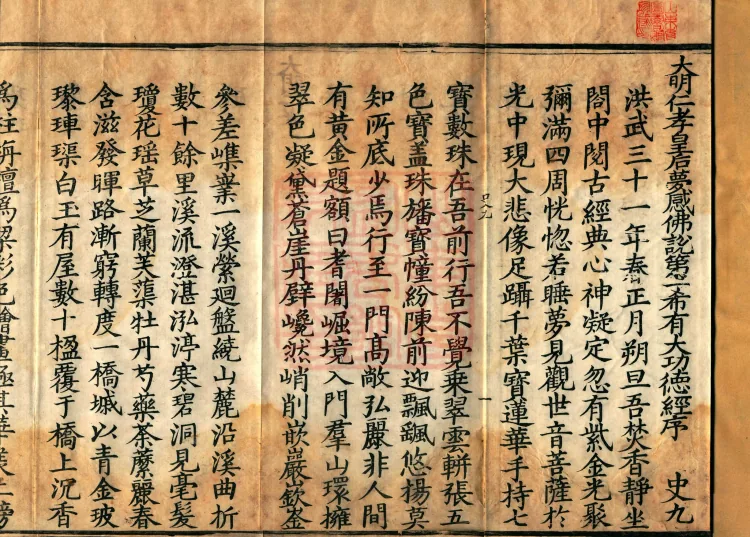 大明仁孝皇后夢感佛說第一希有大功德經序　史九
洪武三十一年春正月朔旦吾焚香靜坐
閤中閱古經典心神凝定忽有紫金光聚
彌滿四周恍惚若睡夢見觀世音菩薩於
光中現大悲像足躡千葉寶蓮華手持七
寶數珠在吾前行吾不覺乘翠雲輧張五
色寶盖珠旛寶幢紛陳前迎飄飖悠揚莫
知所底少焉行至一門高敞弘麗非人間
有黃金題額曰耆闍崛境入門群山環擁
翠色凝黛蒼崖丹壁巉然峭削嵌巖嶔崟
參差嶕嶪一溪縈迴盤繞山麓沿溪曲折
數十餘里溪流澄湛泓渟寒碧洞見毫髮
瓊花瑶草芝蘭芙蕖牡丹芍藥荼䕷麗春
含滋發暉路漸窮轉度一橋墄以青金玻
瓈硨磲白玉有屋數十楹覆于橋上沉香
為柱栴檀為梁彩色繪畫極其華